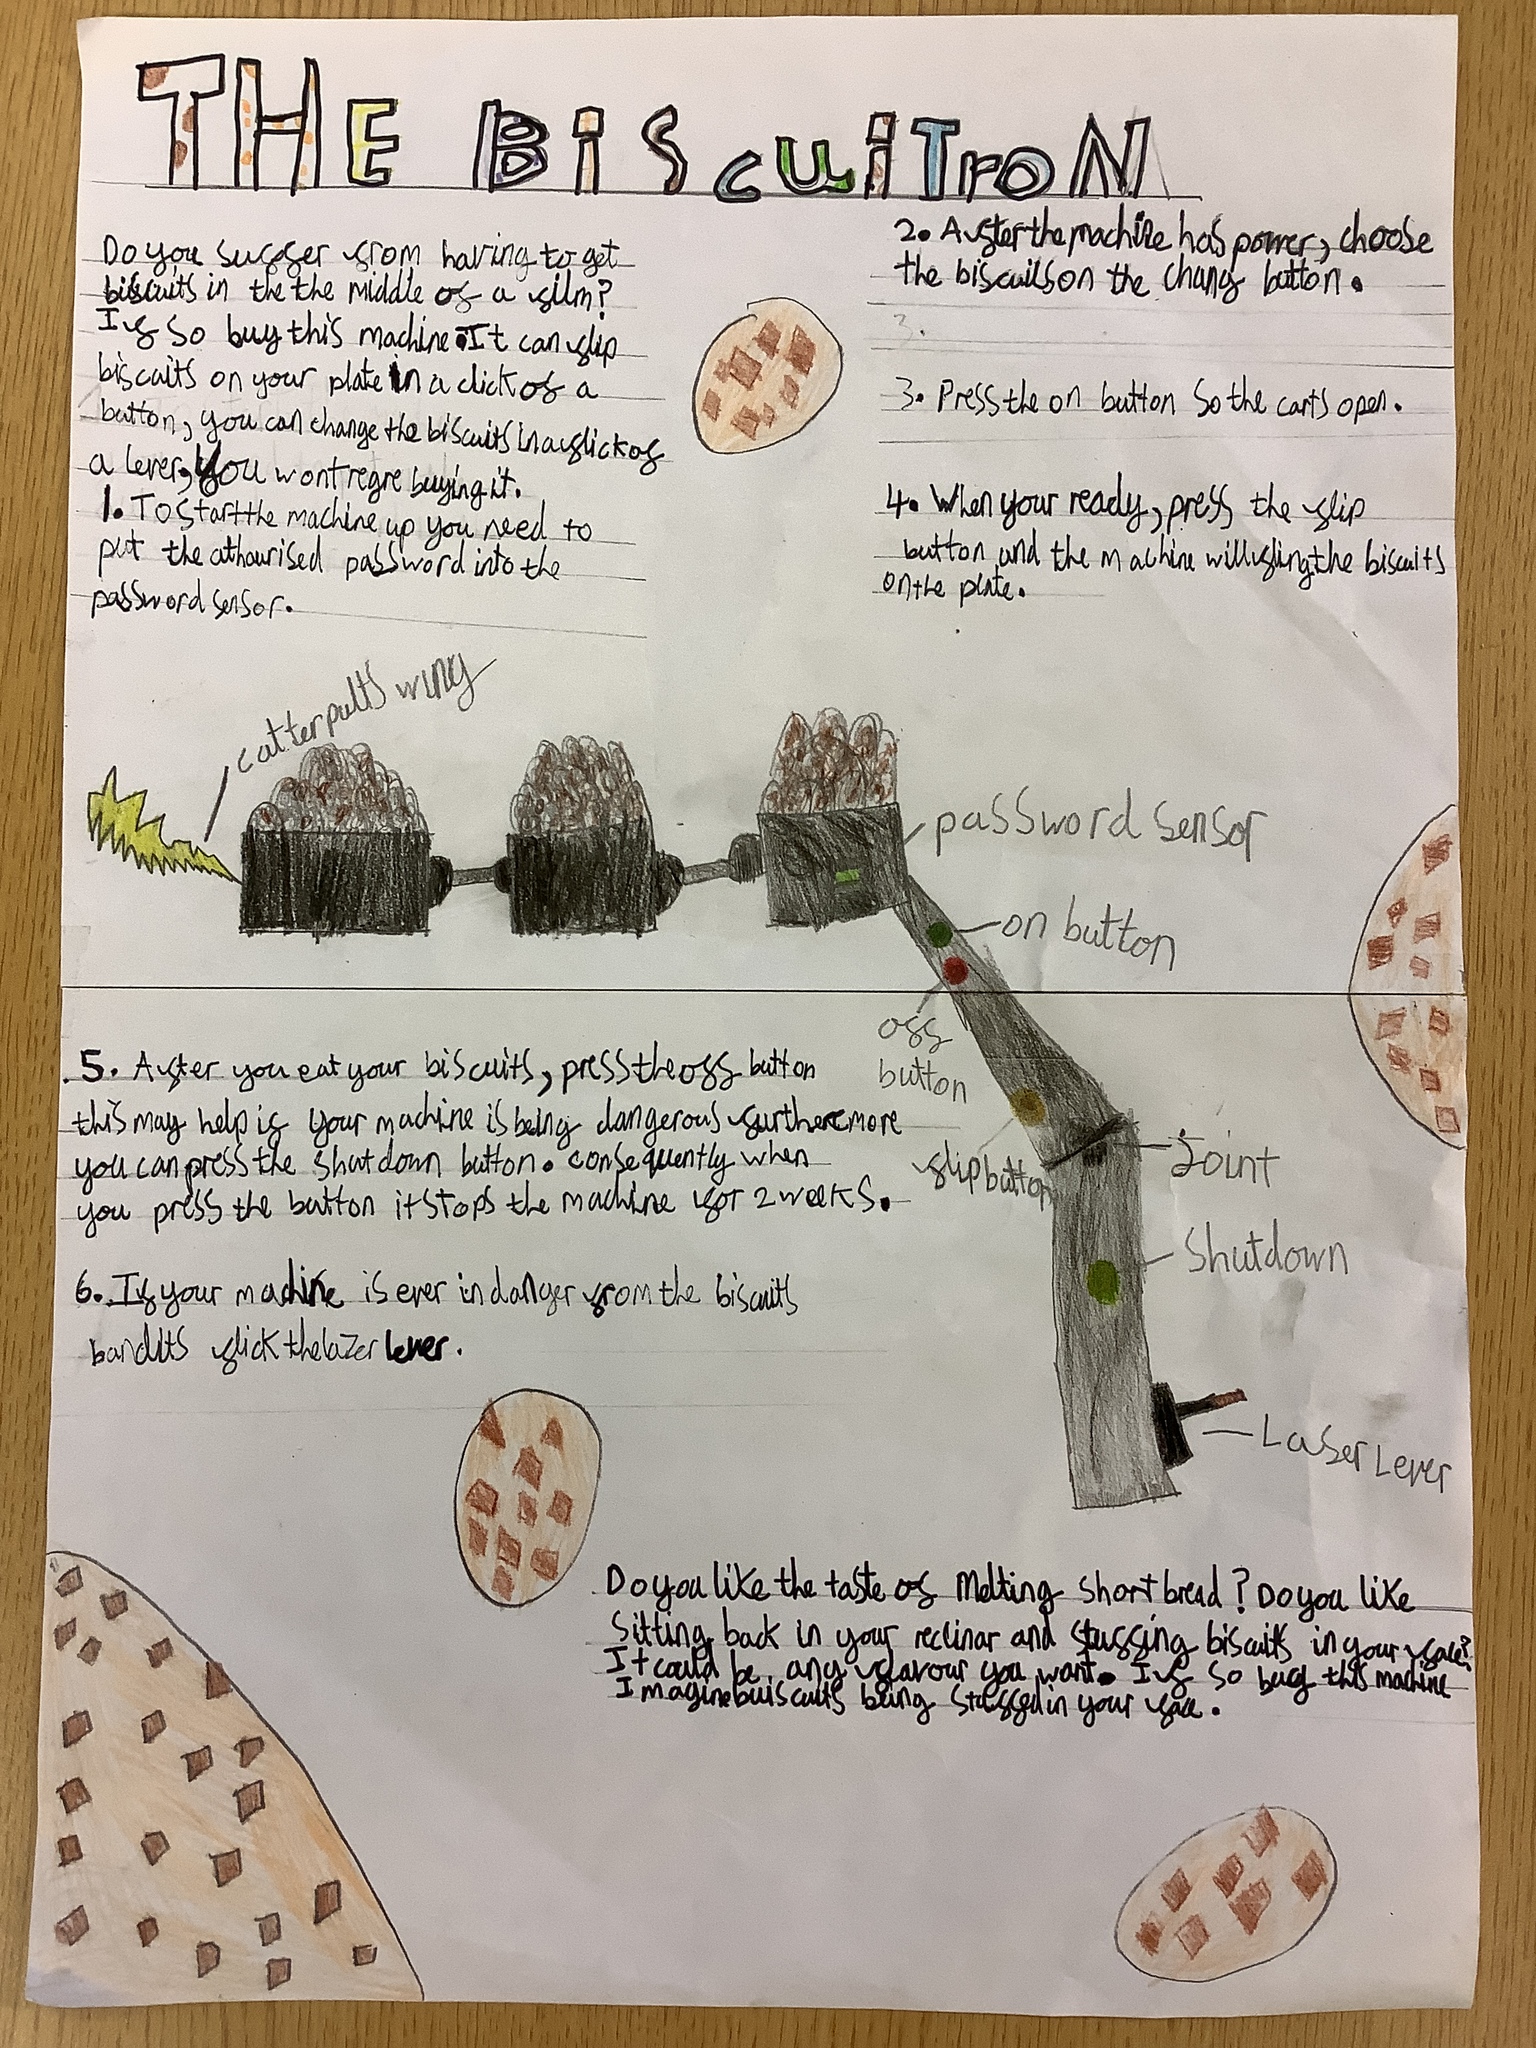 THE BiScuiTroN
Do you suffer from having to get
biscuits in the the middle of a film?
If so buy this machine. It can flip
biscuits on your plate in a click of a
button, you can change the biscuits in a flick of
a lever, you wont regre buying it.
1. To start the machine up you need to
put the athourised password into the
password sensor.
2. After the machine has power, choose
the biscuits on the chang button.
3.
3. Press the on button so the carts open.
4. When your ready, press the flip
button and the machine will fling the biscuits
on the plate.
catterpults wing
password sensor
on button
off
button
flip button
Joint
Shutdown
Laser Lever
5. After you eat your biscuits, press the off button
this may help if your machine is being dangerous furthermore
you can press the shutdown button. consequently when
you press the button it stops the machine for 2 weeks.
6. If your machine is ever in danger from the biscuits
bandits flick the lazer lever.
Do you like the taste of Melting shortbread? Do you like
sitting back in your reclinar and stuffing biscuits in your face?
It could be any flavour you want. If so buy this machine
Imagine buiscuits being stuffed in your face.